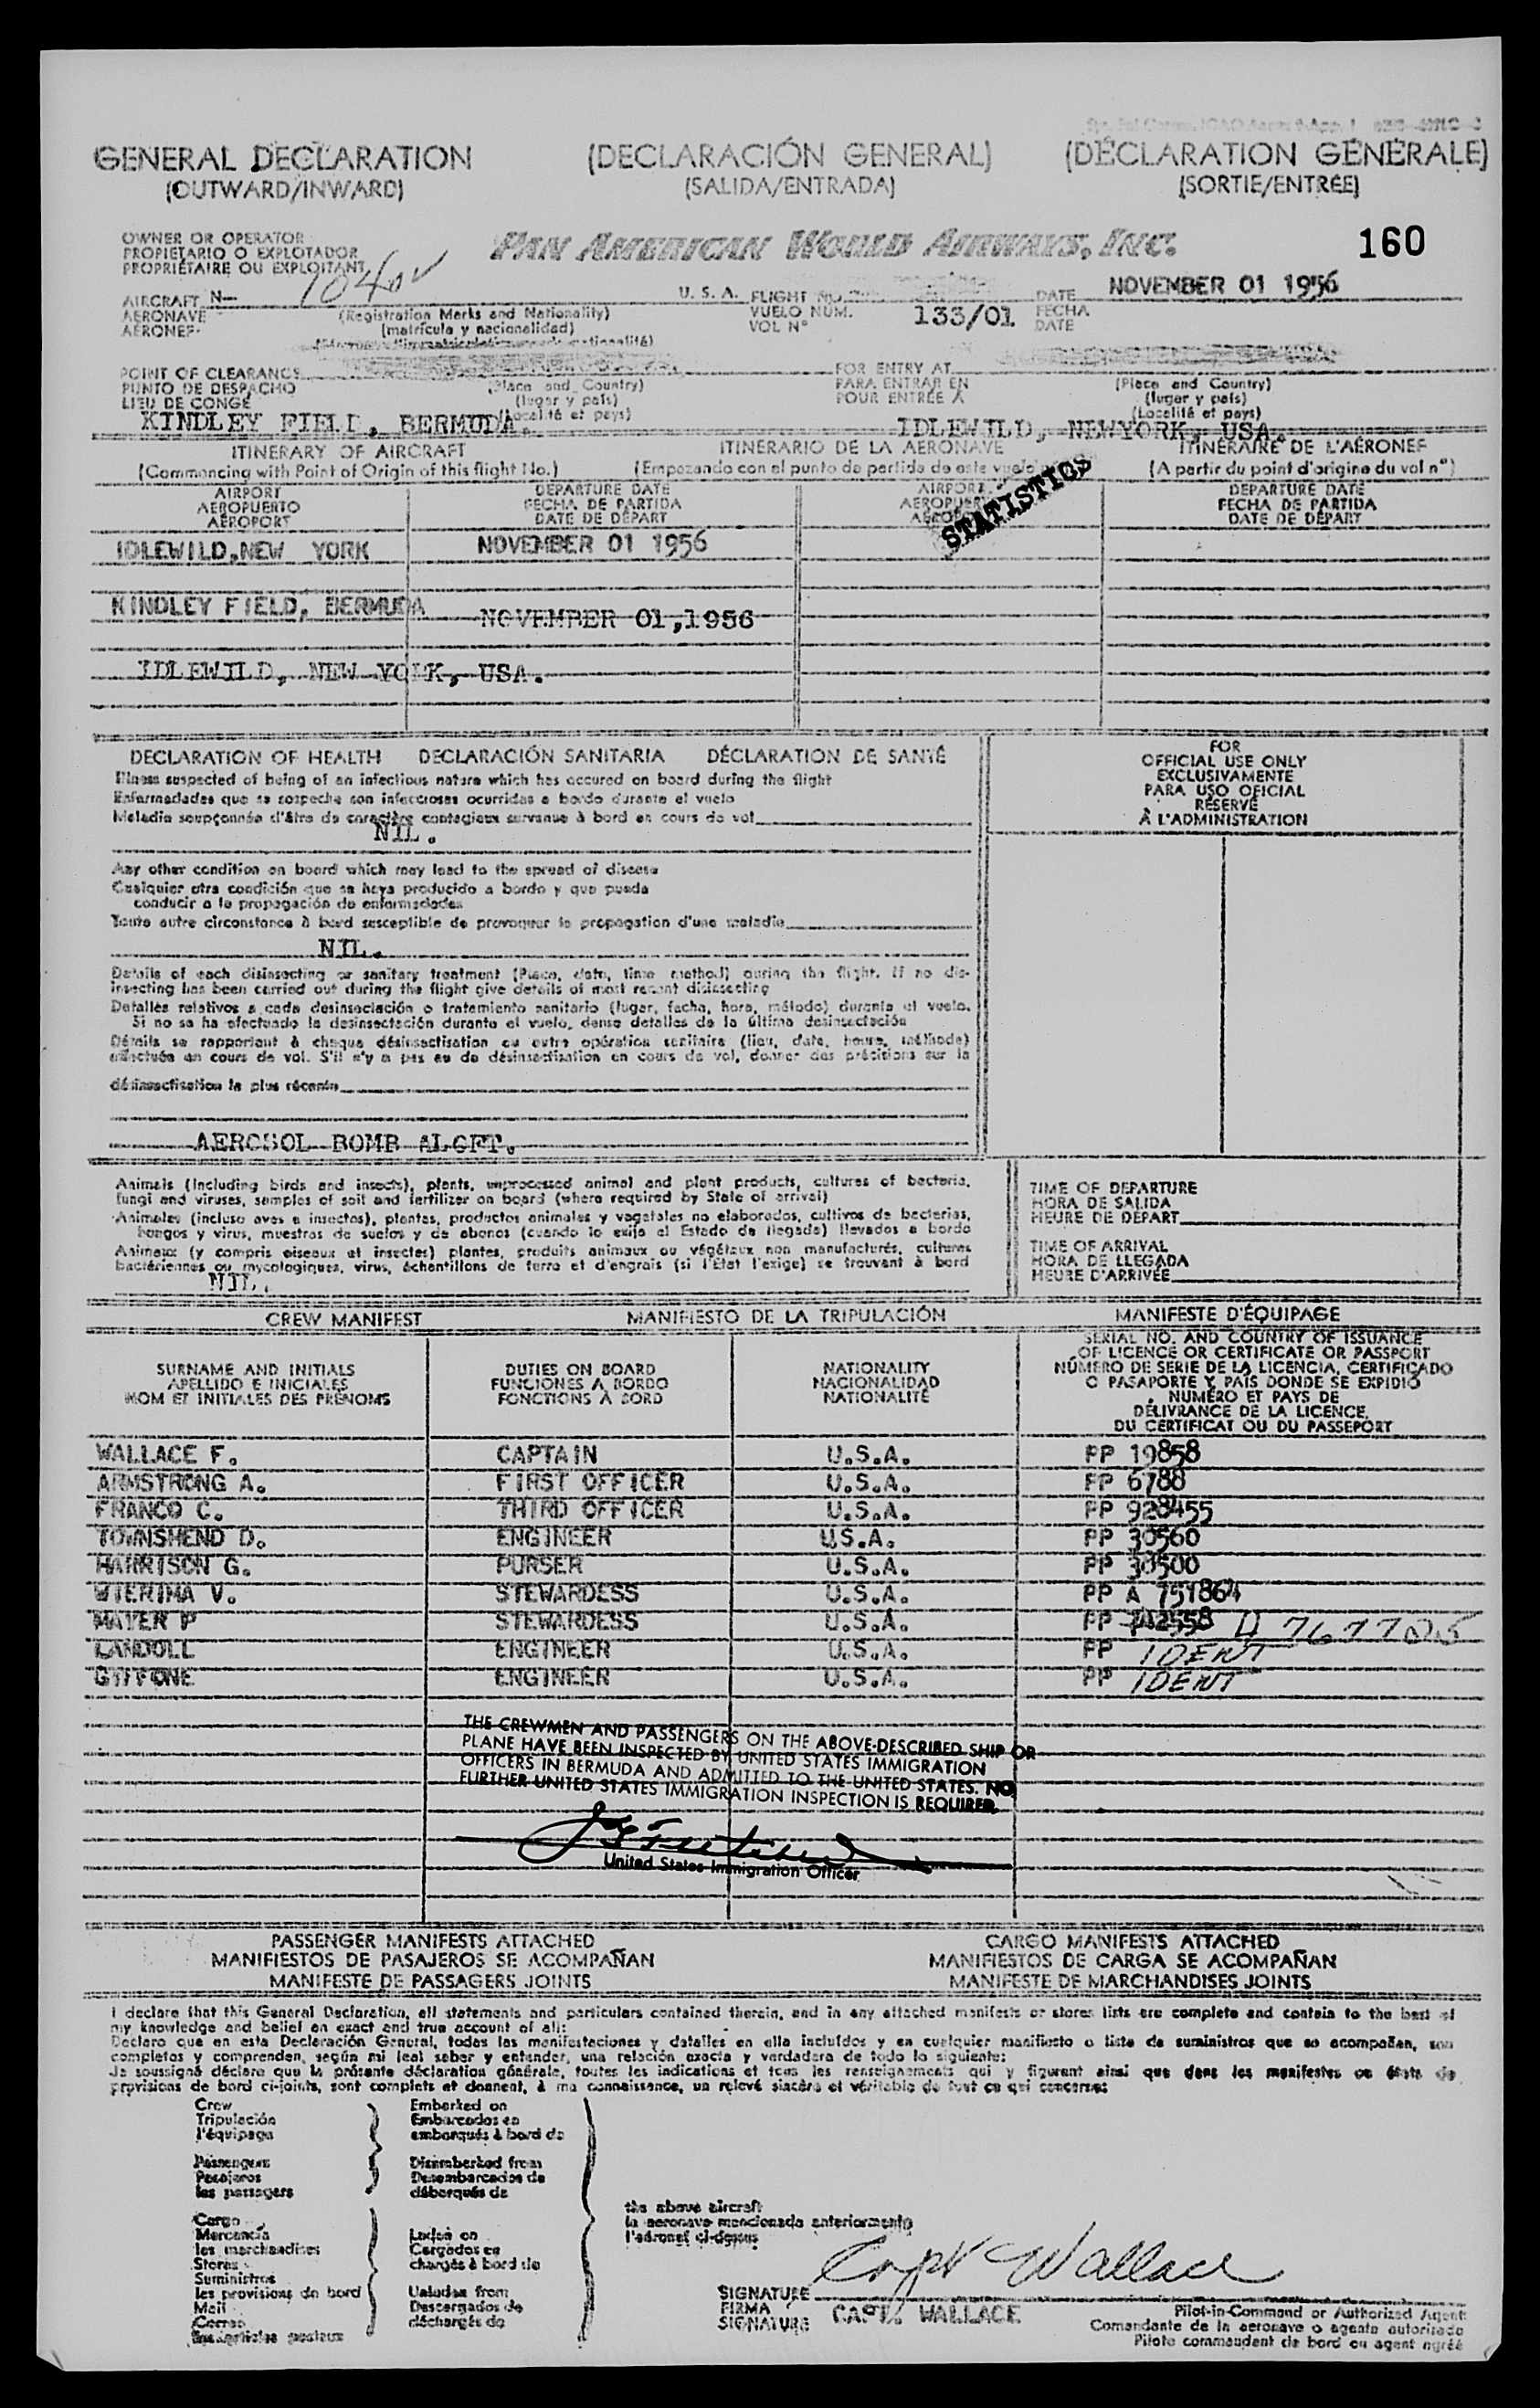 GENERAL DECLARATION (DECLARACIÓN GENERAL) (DÉCLARATION GÉNÉRALE)
(OUTWARD/INWARD) (SALIDA/ENTRADA) (SORTIE/ENTRÉE)
OWNER OR OPERATOR
PROPIETARIO O EXPLOTADOR
PROPRIÉTAIRE OU EXPLOITANT
PAN AMERICAN WORLD AIRWAYS, INC. 160
AIRCRAFT N- U. S. A. FLIGHT NO. DATE NOVEMBER 01 1956
AERONAVE (Registration Marks and Nationality) VUELO NÚM. 133/01 FECHA
AÉRONEF (matrícula y nacionalidad) VOL N° DATE
POINT OF CLEARANCE FOR ENTRY AT
PUNTO DE DESPACHO (Place and Country) PARA ENTRAR EN (Place and Country)
LIEU DE CONGÉ (lugar y país) POUR ENTRÉE À (lugar y país)
(Localité et pays) (Localité et pays)
KINDLEY FIELD, BERMUDA. IDLEWILD, NEWYORK, USA.
ITINERARY OF AIRCRAFT ITINERARIO DE LA AERONAVE ITINÉRAIRE DE L'AÉRONEF
(Commencing with Point of Origin of this flight No.) (Empezando con el punto de partida de este vuelo (A partir du point d'origine du vol n°)
STATISTICS
AIRPORT DEPARTURE DATE AIRPORT DEPARTURE DATE
AEROPUERTO FECHA DE PARTIDA FECHA DE PARTIDA
AÉROPORT DATE DE DÉPART DATE DE DÉPART
IDLEWILD,NEW YORK NOVEMBER 01 1956
KINDLEY FIELD, BERMUDA NOVEMBER 01,1956
IDLEWILD, NEW YORK, USA.
DECLARATION OF HEALTH DECLARACIÓN SANITARIA DÉCLARATION DE SANTÉ
Illness suspected of being of an infectious nature which has occured on board during the flight
Enfermedades que se sospeche son infecciosas ocurridas a bordo durante el vuelo
Maladie soupçonnée d'être de caractère contagieux survenue à bord en cours de vol
NIL.
Any other condition on board which may lead to the spread of disease
Cualquier otra condición que se haya producido a bordo y que pueda
conducir a la propagación de enfermedades
Toute autre circonstance à bord susceptible de provoquer la propagation d'une maladie
NIL.
Details of each disinsecting or sanitary treatment (Place, date, time method) during the flight. If no dis-
insecting has been carried out during the flight give details of most recent disinsecting
Detalles relativos a cada desinsectación o tratamiento sanitario (lugar, fecha, hora, método) durante el vuelo.
Si no se ha efectuado la desinsectación durante el vuelo, dense detalles de la última desinsectación
Détails se rapportant à chaque désinsectisation ou autre opération sanitaire (lieu, date, heure, méthode)
effectuée en cours de vol. S'il n'y a pas eu de désinsectisation en cours de vol, donner des précisions sur la
désinsectisation la plus récente
AEROSOL BOMB ALOFT.
FOR
OFFICIAL USE ONLY
EXCLUSIVAMENTE
PARA USO OFICIAL
RÉSERVÉ
À L'ADMINISTRATION
Animals (Including birds and insects), plants, unprocessed animal and plant products, cultures of bacteria,
fungi and viruses, samples of soil and fertilizer on board (where required by State of arrival)
Animales (incluso aves e insectos), plantas, productos animales y vegetales no elaborados, cultivos de bacterias,
hongos y virus, muestras de suelos y de abonos (cuando lo exija el Estado de llegada) llevados a bordo
Animaux (y compris oiseaux et insectes) plantes, produits animaux ou végétaux non manufacturés, cultures
bactériennes ou mycologiques, virus, échantillons de terre et d'engrais (si l'État l'exige) se trouvant à bord
NIL.
TIME OF DEPARTURE
HORA DE SALIDA
HEURE DE DÉPART
TIME OF ARRIVAL
HORA DE LLEGADA
HEURE D'ARRIVÉE
CREW MANIFEST MANIFIESTO DE LA TRIPULACIÓN MANIFESTE D'ÉQUIPAGE
SURNAME AND INITIALS DUTIES ON BOARD NATIONALITY
APELLIDO E INICIALES FUNCIONES A BORDO NACIONALIDAD
NOM ET INITIALES DES PRÉNOMS FONCTIONS À BORD NATIONALITÉ
SERIAL NO. AND COUNTRY OF ISSUANCE
OF LICENCE OR CERTIFICATE OR PASSPORT
NÚMERO DE SERIE DE LA LICENCIA, CERTIFICADO
O PASAPORTE Y PAÍS DONDE SE EXPIDIÓ
NUMÉRO ET PAYS DE
DÉLIVRANCE DE LA LICENCE,
DU CERTIFICAT OU DU PASSEPORT
WALLACE F. CAPTAIN U.S.A. PP 19858
ARMSTRONG A. FIRST OFFICER U.S.A. PP 6788
FRANCO C. THIRD OFFICER U.S.A. PP 928455
TOWNSHEND D. ENGINEER U.S.A. PP 30560
HARRISON G. PURSER U.S.A. PP 30500
WIERIMA V. STEWARDESS U.S.A. PP A 751864
MAYER P STEWARDESS U.S.A. PP
LANDOLL ENGINEER U.S.A. PP IDENT
GIFFONE ENGINEER U.S.A. PP IDENT
THE CREWMEN AND PASSENGERS ON THE ABOVE-DESCRIBED SHIP OR
PLANE HAVE BEEN INSPECTED BY UNITED STATES IMMIGRATION
OFFICERS IN BERMUDA AND ADMITTED TO THE UNITED STATES. NO
FURTHER UNITED STATES IMMIGRATION INSPECTION IS REQUIRED.
United States Immigration Officer
PASSENGER MANIFESTS ATTACHED CARGO MANIFESTS ATTACHED
MANIFIESTOS DE PASAJEROS SE ACOMPAÑAN MANIFIESTOS DE CARGA SE ACOMPAÑAN
MANIFESTE DE PASSAGERS JOINTS MANIFESTE DE MARCHANDISES JOINTS
I declare that this General Declaration, all statements and particulars contained therein, and in any attached manifests or stores lists are complete and contain to the best of
my knowledge and belief an exact and true account of all:
Declaro que en esta Declaración General, todas las manifestaciones y detalles en ella incluídos y en cualquier manifiesto o lista de suministros que se acompañan, son
completas y comprenden, según mi leal saber y entender, una relación exacta y verdadera de todo lo siguiente:
Je soussigné déclare que la présente déclaration générale, toutes les indications et tous les renseignements qui y figurent ainsi que dans les manifestes ou états de
provisions de bord ci-joints, sont complets et donnent, à ma connaissance, un relevé sincère et véritable de tout ce qui concerne:
Crew Embarked on
Tripulación Embarcados en
l'équipage embarqués à bord de
Passengers Disembarked from
Pasajeros Desembarcados de
les passagers débarqués de
the above aircraft
la aeronave mencionada anteriormente
l'aéronef ci-dessus
Cargo
Mercancía Laden on
les marchandises Cargados en
Stores chargés à bord de
Suministros
les provisions de bord Unladen from
Mail Descargados de
Correo déchargés de
les articles postaux
Capt Wallace
SIGNATURE
FIRMA CAPT. WALLACE
SIGNATURE
Pilot-in-Command or Authorized Agent
Comandante de la aeronave o agente autorizado
Pilote commandant de bord ou agent agréé